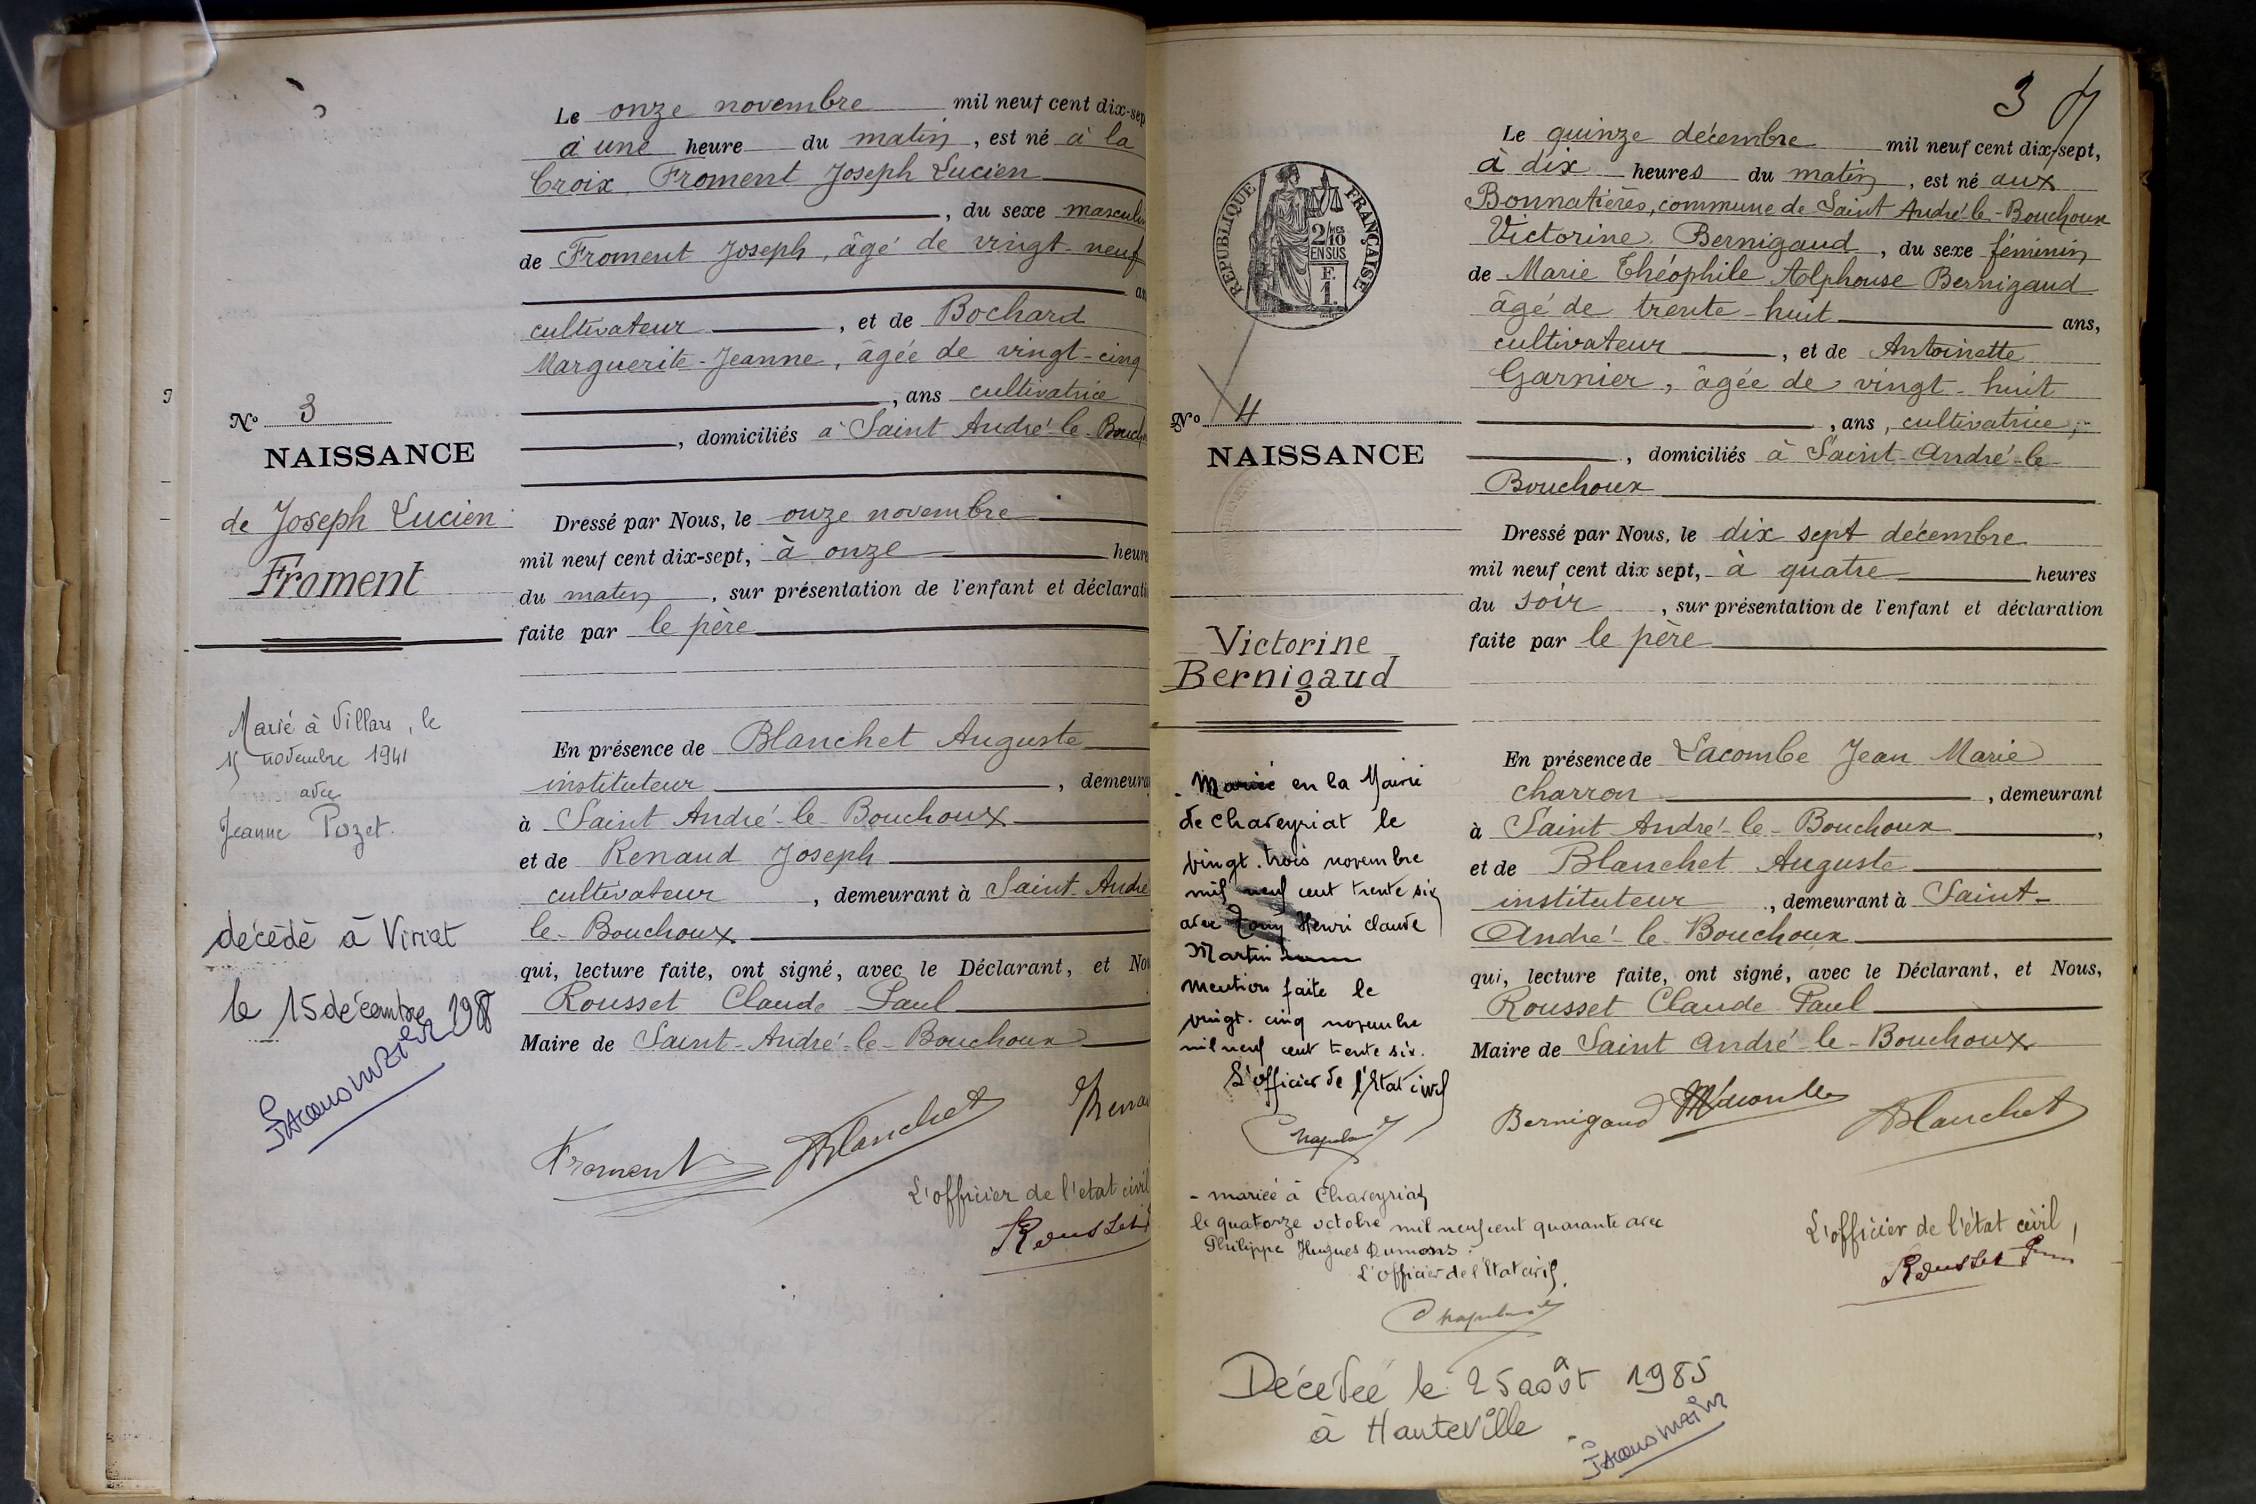 Le onze novembre mil neuf cent dix-sep
à une heure du matin, est né à la
Croix Froment Joseph Lucien
, du sexe masculin
de Froment Joseph, âgé de vingt-neuf
an
cultivateur, et de Bochard
Marguerite-Jeanne, âgée de vingt-cinq
, ans cultivatrice
, domiciliés à Saint André-le-Bouch
Nº 3
NAISSANCE
de Joseph Lucien
Froment
Dressé par Nous, le onze novembre
mil neuf cent dix-sept, à onze heure
du matin, sur présentation de l'enfant et déclarati
faite par le père
Marié à Villars, le
15 novembre 1941
avec
Jeanne Pozet.
décédé à Viriat
le 15 décembre 198
En présence de Blanchet Auguste
instituteur, demeura
à Saint André-le-Bouchoux
et de Renaud Joseph
cultivateur, demeurant à Saint-André
le-Bouchoux
qui, lecture faite, ont signé, avec le Déclarant, et No
Rousset Claude Paul
Maire de Saint-André-le-Bouchoux
Froment Blanchet Renau
L'officier de l'état civil
Rousset
3
RÉPUBLIQUE FRANÇAISE
2/10 EN SUS
F.
1.
Le quinze décembre mil neuf cent dix-sept,
à dix heures du matin, est né aux
Bonnatières, commune de Saint André-le-Bouchoux
Victorine Bernigaud, du sexe féminin
de Marie Théophile Alphonse Bernigaud
âgé de trente-huit ans,
cultivateur, et de Antoinette
Garnier, âgée de vingt-huit
, ans, cultivatrice,
, domiciliés à Saint-André-le
Bouchoux
Nº 4
NAISSANCE
Victorine
Bernigaud
Dressé par Nous, le dix sept décembre
mil neuf cent dix sept, à quatre heures
du soir, sur présentation de l'enfant et déclaration
faite par le père
- Mariée en la Mairie
de Chaveyriat le
vingt-trois novembre
mil neuf cent trente six
avec Henri Claude
Martin
mention faite le
vingt-cinq novembre
mil neuf cent trente six.
L'officier de l'Etat civil
En présence de Lacombe Jean Marie
charron, demeurant
à Saint André-le-Bouchoux,
et de Blanchet Auguste
instituteur, demeurant à Saint-
André-le-Bouchoux
qui, lecture faite, ont signé, avec le Déclarant, et Nous,
Rousset Claude Paul
Maire de Saint André-le-Bouchoux
Bernigaud Blanchet
L'officier de l'état civil,
Rousset
- mariée à Chaveyriat
le quatorze octobre mil neuf cent quarante avec
Philippe Hugues Dumons.
L'officier de l'Etat civil.
Décédée le 25 août 1985
à Hauteville